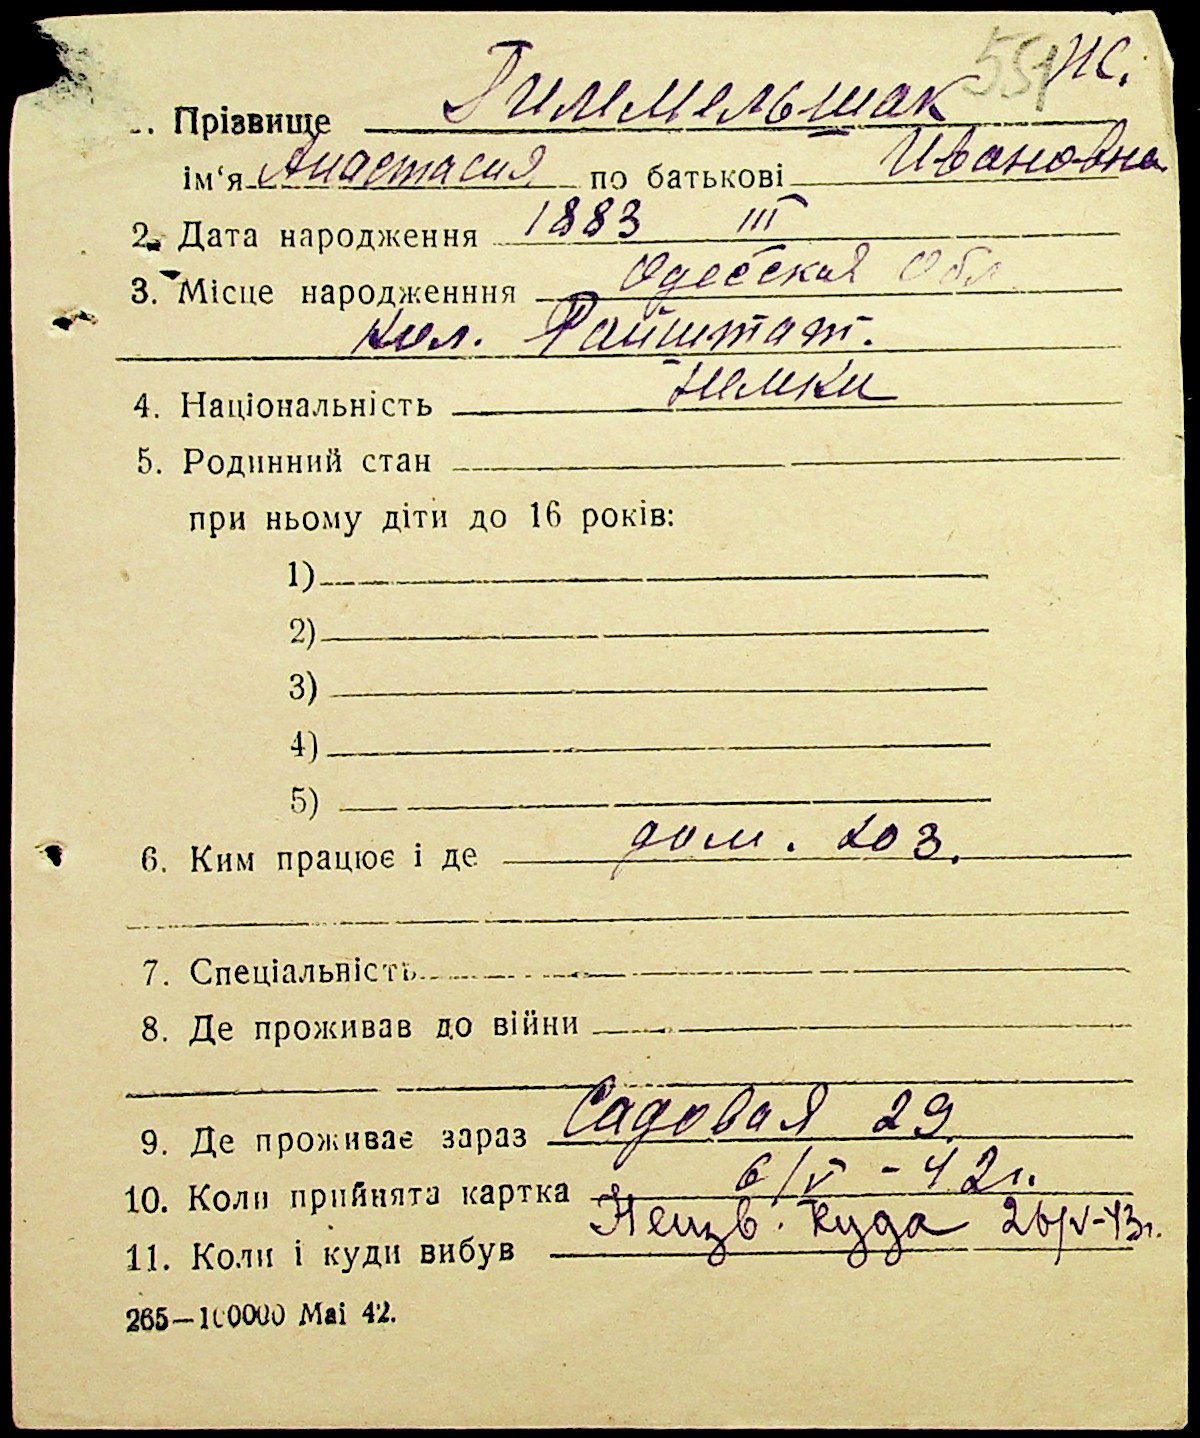 551 нс.
1. Прізвище Гимельшак
ім‘я Анастасия по батькові Ивановна
2. Дата народження 1883 III
3. Місце народженння Одесская Обл
Кол. Райштат.
4. Національність немки
5. Родинний стан
при ньому діти до 16 років:
1)
2)
3)
4)
5)
6. Ким працює і де дом. хоз.
7. Спеціальність
8. Де проживав до війни
9. Де проживає зараз Садовая 29
10. Коли прийнята картка 6/V - 42г.
11. Коли і куди вибув Неизв. куда 26/V-43г.
265—100000 Mai 42.